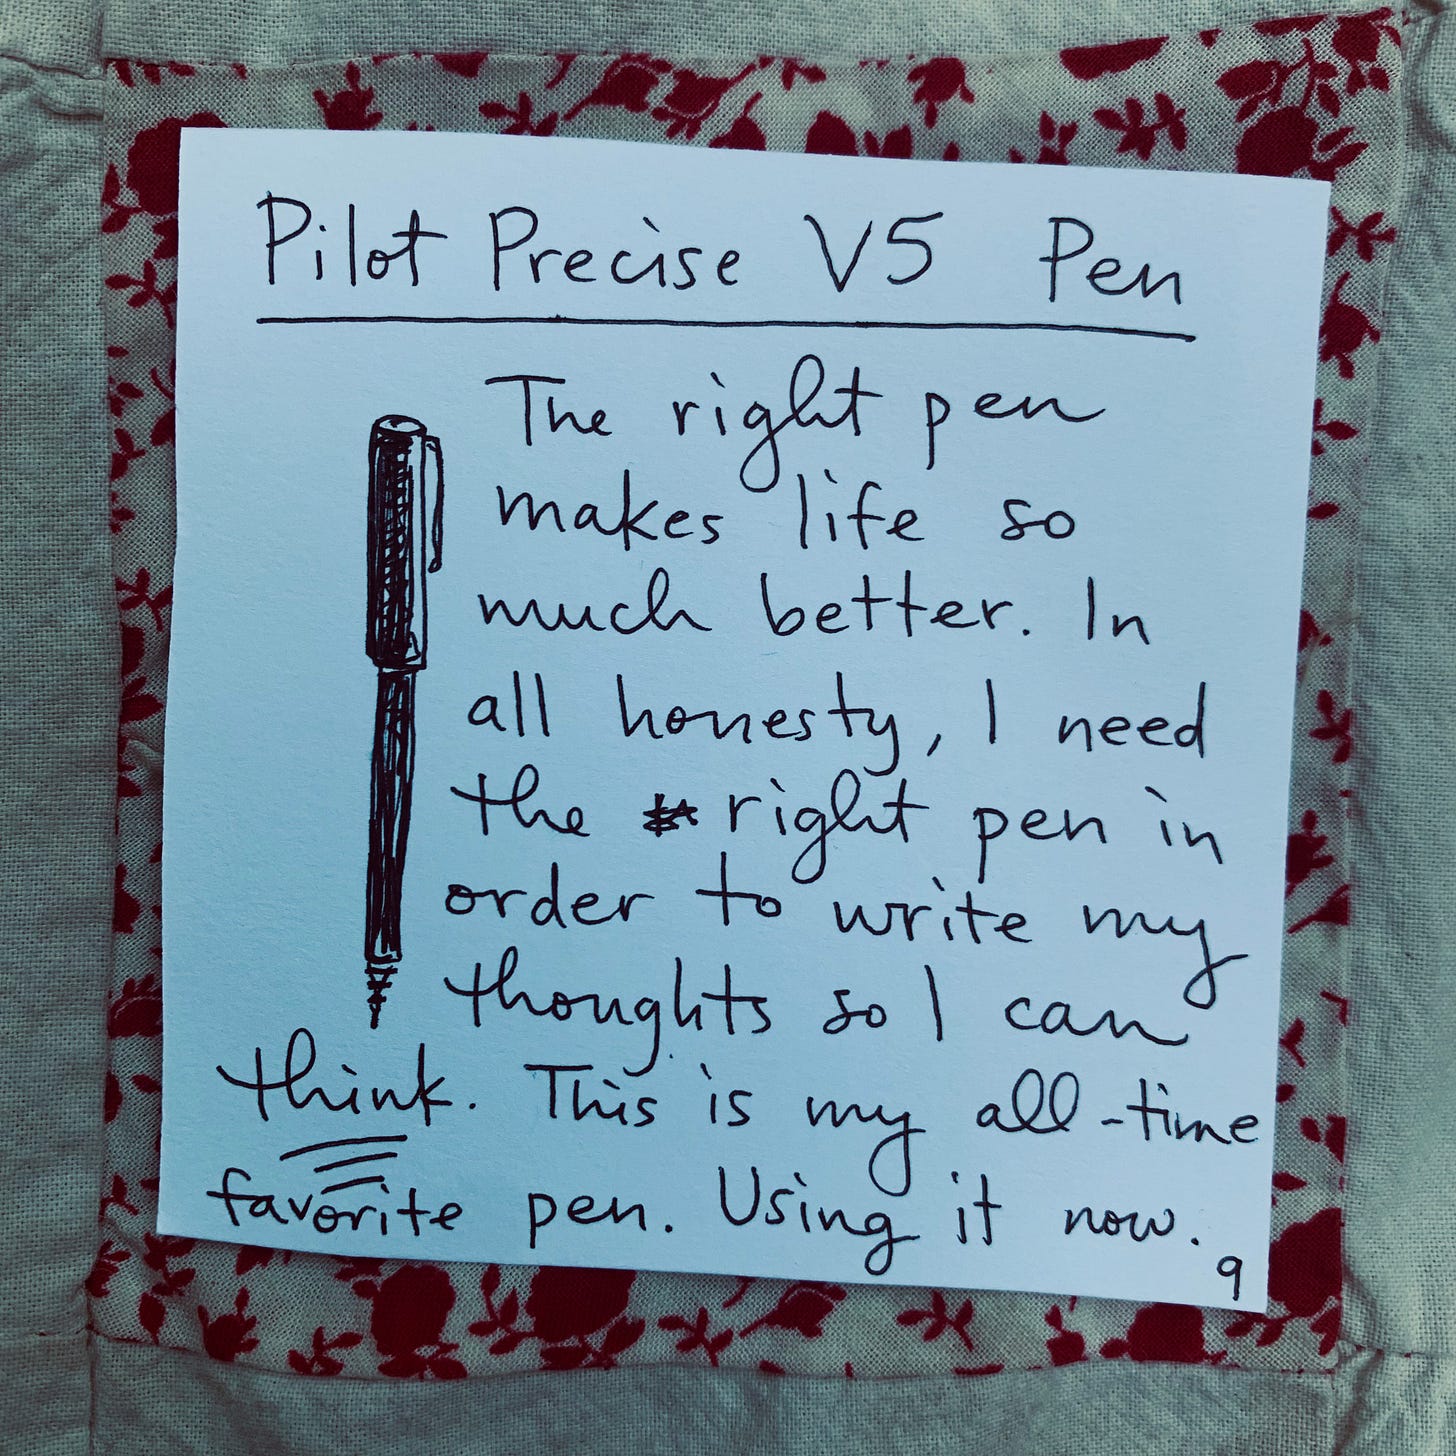 Pilot Precise V5 Pen
The right pen
makes life so
much better. In
all honesty, I need
the right pen in
order to write my
thoughts so I can
think. This is my all-time
favorite pen. Using it now.
9